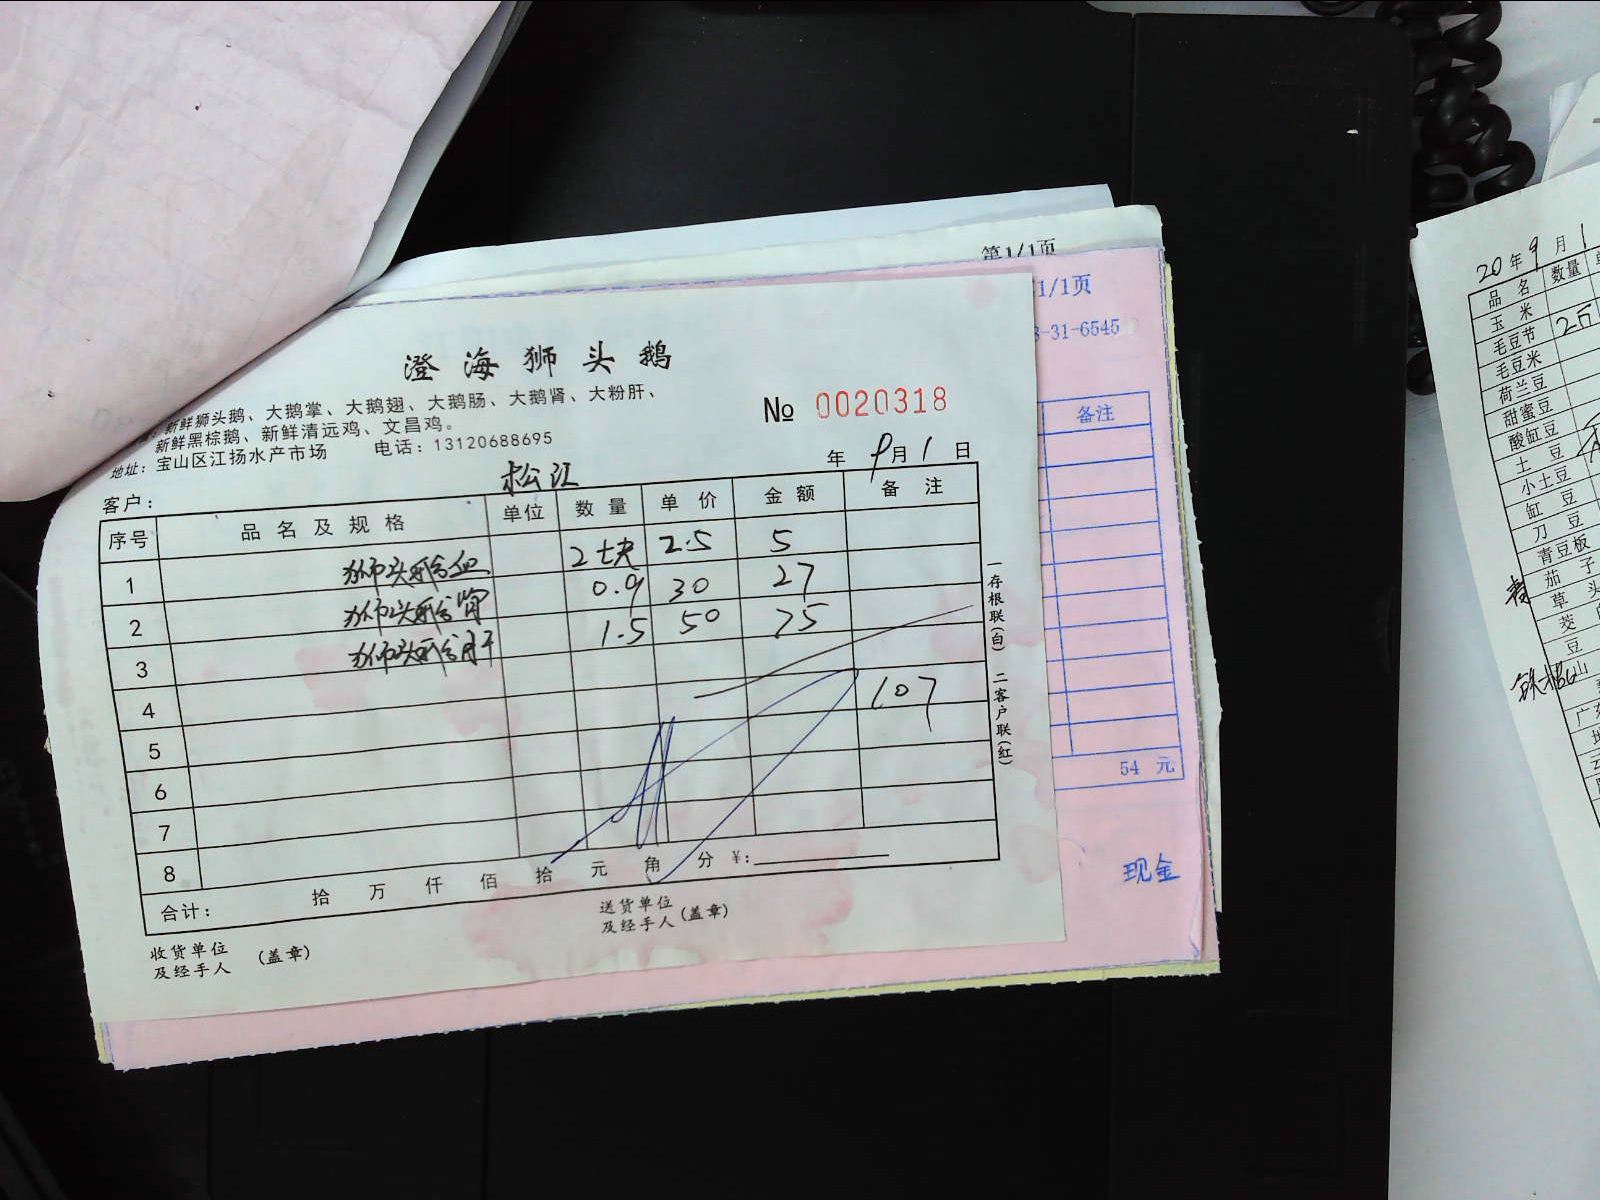 第1/1页
1/1页
3-31-6545
备注
54 元
现金
澄海狮头鹅
新鲜狮头鹅、大鹅掌、大鹅翅、大鹅肠、大鹅肾、大粉肝、
新鲜黑棕鹅、新鲜清远鸡、文昌鸡。
地址：宝山区江扬水产市场 电话：13120688695
№ 0020318
年 9月1日
客户： 松江
序号 品名及规格 单位 数量 单价 金额 备注
1 狮头鹅血 2块 2.5 5
2 狮头鹅肾 0.9 30 27
3 狮头鹅肝 1.5 50 75
4 107
5
6
7
8
合计： 拾 万 仟 佰 拾 元 角 分 ¥:
收货单位
及经手人 (盖章)
送货单位
及经手人 (盖章)
一存根联(白) 二客户联(红)
20年9月1
品名 数量
玉米
毛豆节 2斤
毛豆米
荷兰豆
甜蜜豆
酸缸豆
土豆
小土豆
缸豆
刀豆
青豆板
茄子
草头
茭
豆
山
广东